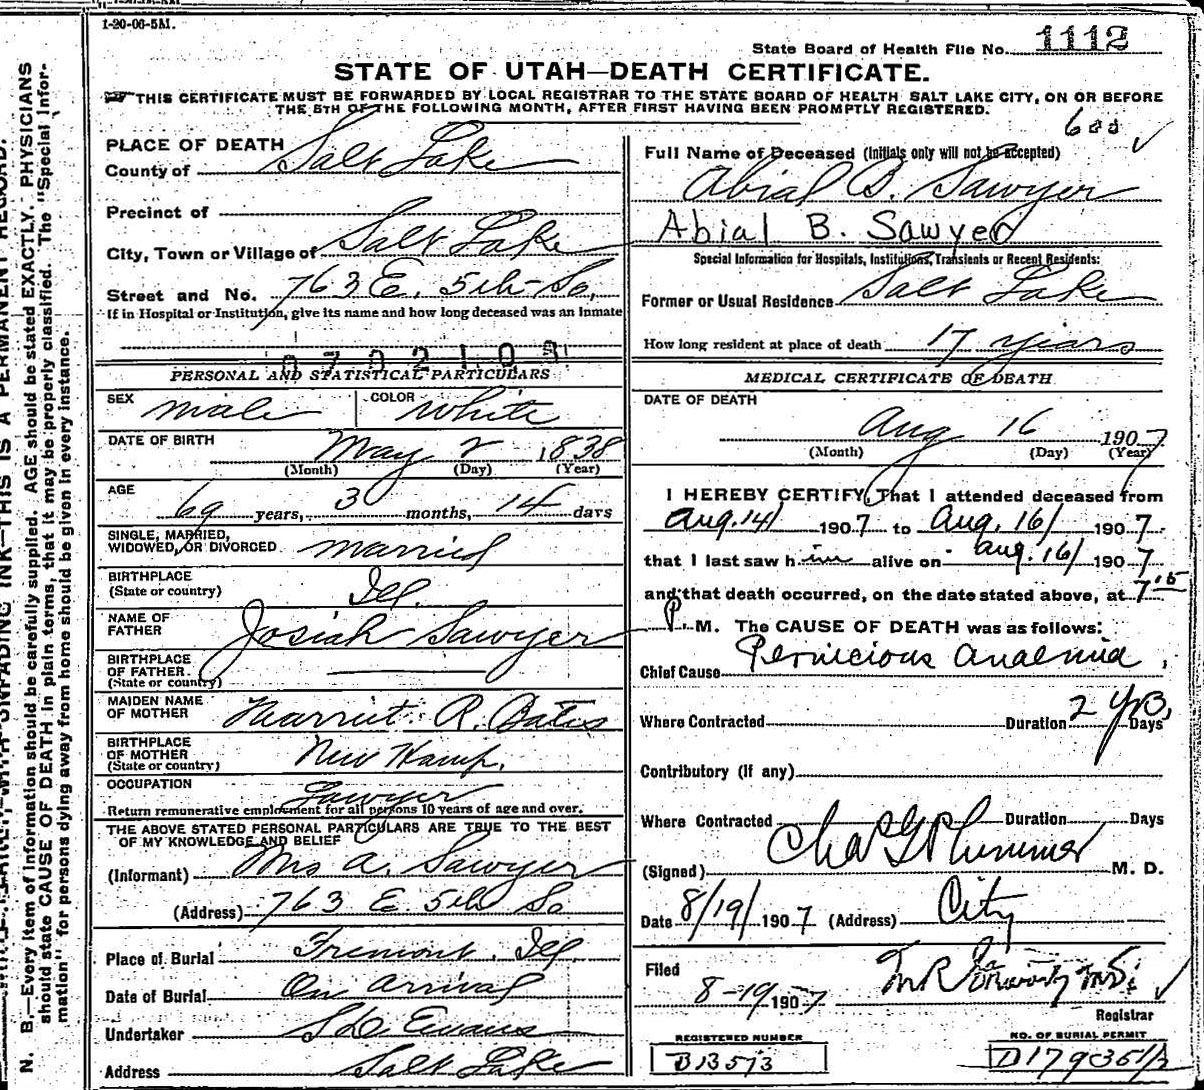 1-20-06-5M.
State Board of Health File No. 1112
STATE OF UTAH—DEATH CERTIFICATE.
THIS CERTIFICATE MUST BE FORWARDED BY LOCAL REGISTRAR TO THE STATE BOARD OF HEALTH SALT LAKE CITY, ON OR BEFORE
THE 5TH OF THE FOLLOWING MONTH, AFTER FIRST HAVING BEEN PROMPTLY REGISTERED.
N. B.—Every item of information should be carefully supplied. AGE should be stated EXACTLY. PHYSICIANS
should state CAUSE OF DEATH in plain terms, that it may be properly classified. The "Special Infor-
mation" for persons dying away from home should be given in every instance.
PLACE OF DEATH
County of Salt Lake
Precinct of
City, Town or Village of Salt Lake
Street and No. 763 E. 5th So.
If in Hospital or Institution, give its name and how long deceased was an Inmate
0702103
PERSONAL AND STATISTICAL PARTICULARS
SEX male COLOR white
DATE OF BIRTH May 2 1838
(Month) (Day) (Year)
AGE 69 years, 3 months, 14 days
SINGLE, MARRIED, WIDOWED, OR DIVORCED married
BIRTHPLACE (State or country) Ill.
NAME OF FATHER Josiah Sawyer
BIRTHPLACE OF FATHER. (State or country)
MAIDEN NAME OF MOTHER Harriet R. Bates
BIRTHPLACE OF MOTHER (State or country) New Hamp.
OCCUPATION Lawyer
Return remunerative employment for all persons 10 years of age and over.
THE ABOVE STATED PERSONAL PARTICULARS ARE TRUE TO THE BEST
OF MY KNOWLEDGE AND BELIEF
(Informant) Mrs A. Sawyer
(Address) 763 E 5th So
Place of Burial Fremont, Ill
Date of Burial On arrival
Undertaker Evans
Address Salt Lake
600
Full Name of Deceased (Initials only will not be accepted)
Abial B. Sawyer
Abial B. Sawyer
Special Information for Hospitals, Institutions, Transients or Recent Residents:
Former or Usual Residence Salt Lake
How long resident at place of death 17 years
MEDICAL CERTIFICATE OF DEATH
DATE OF DEATH
Aug 16 1907
(Month) (Day) (Year)
I HEREBY CERTIFY, That I attended deceased from
Aug. 14/ 1907 to Aug. 16/ 1907
that I last saw him alive on Aug. 16/ 1907
and that death occurred, on the date stated above, at 7 15
P M. The CAUSE OF DEATH was as follows:
Chief Cause Pernicious Anaemia
Where Contracted Duration 2 yrs, Days
Contributory (If any)
Where Contracted Duration Days
(Signed) Chas G Plummer M. D.
Date 8/19/1907 (Address) City
Filed 8-19/1907
Registrar
REGISTERED NUMBER
B13573
NO. OF BURIAL PERMIT